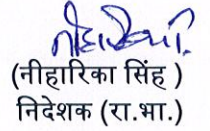 (नीहारिका सिंह )
निदेशक (रा.भा.)